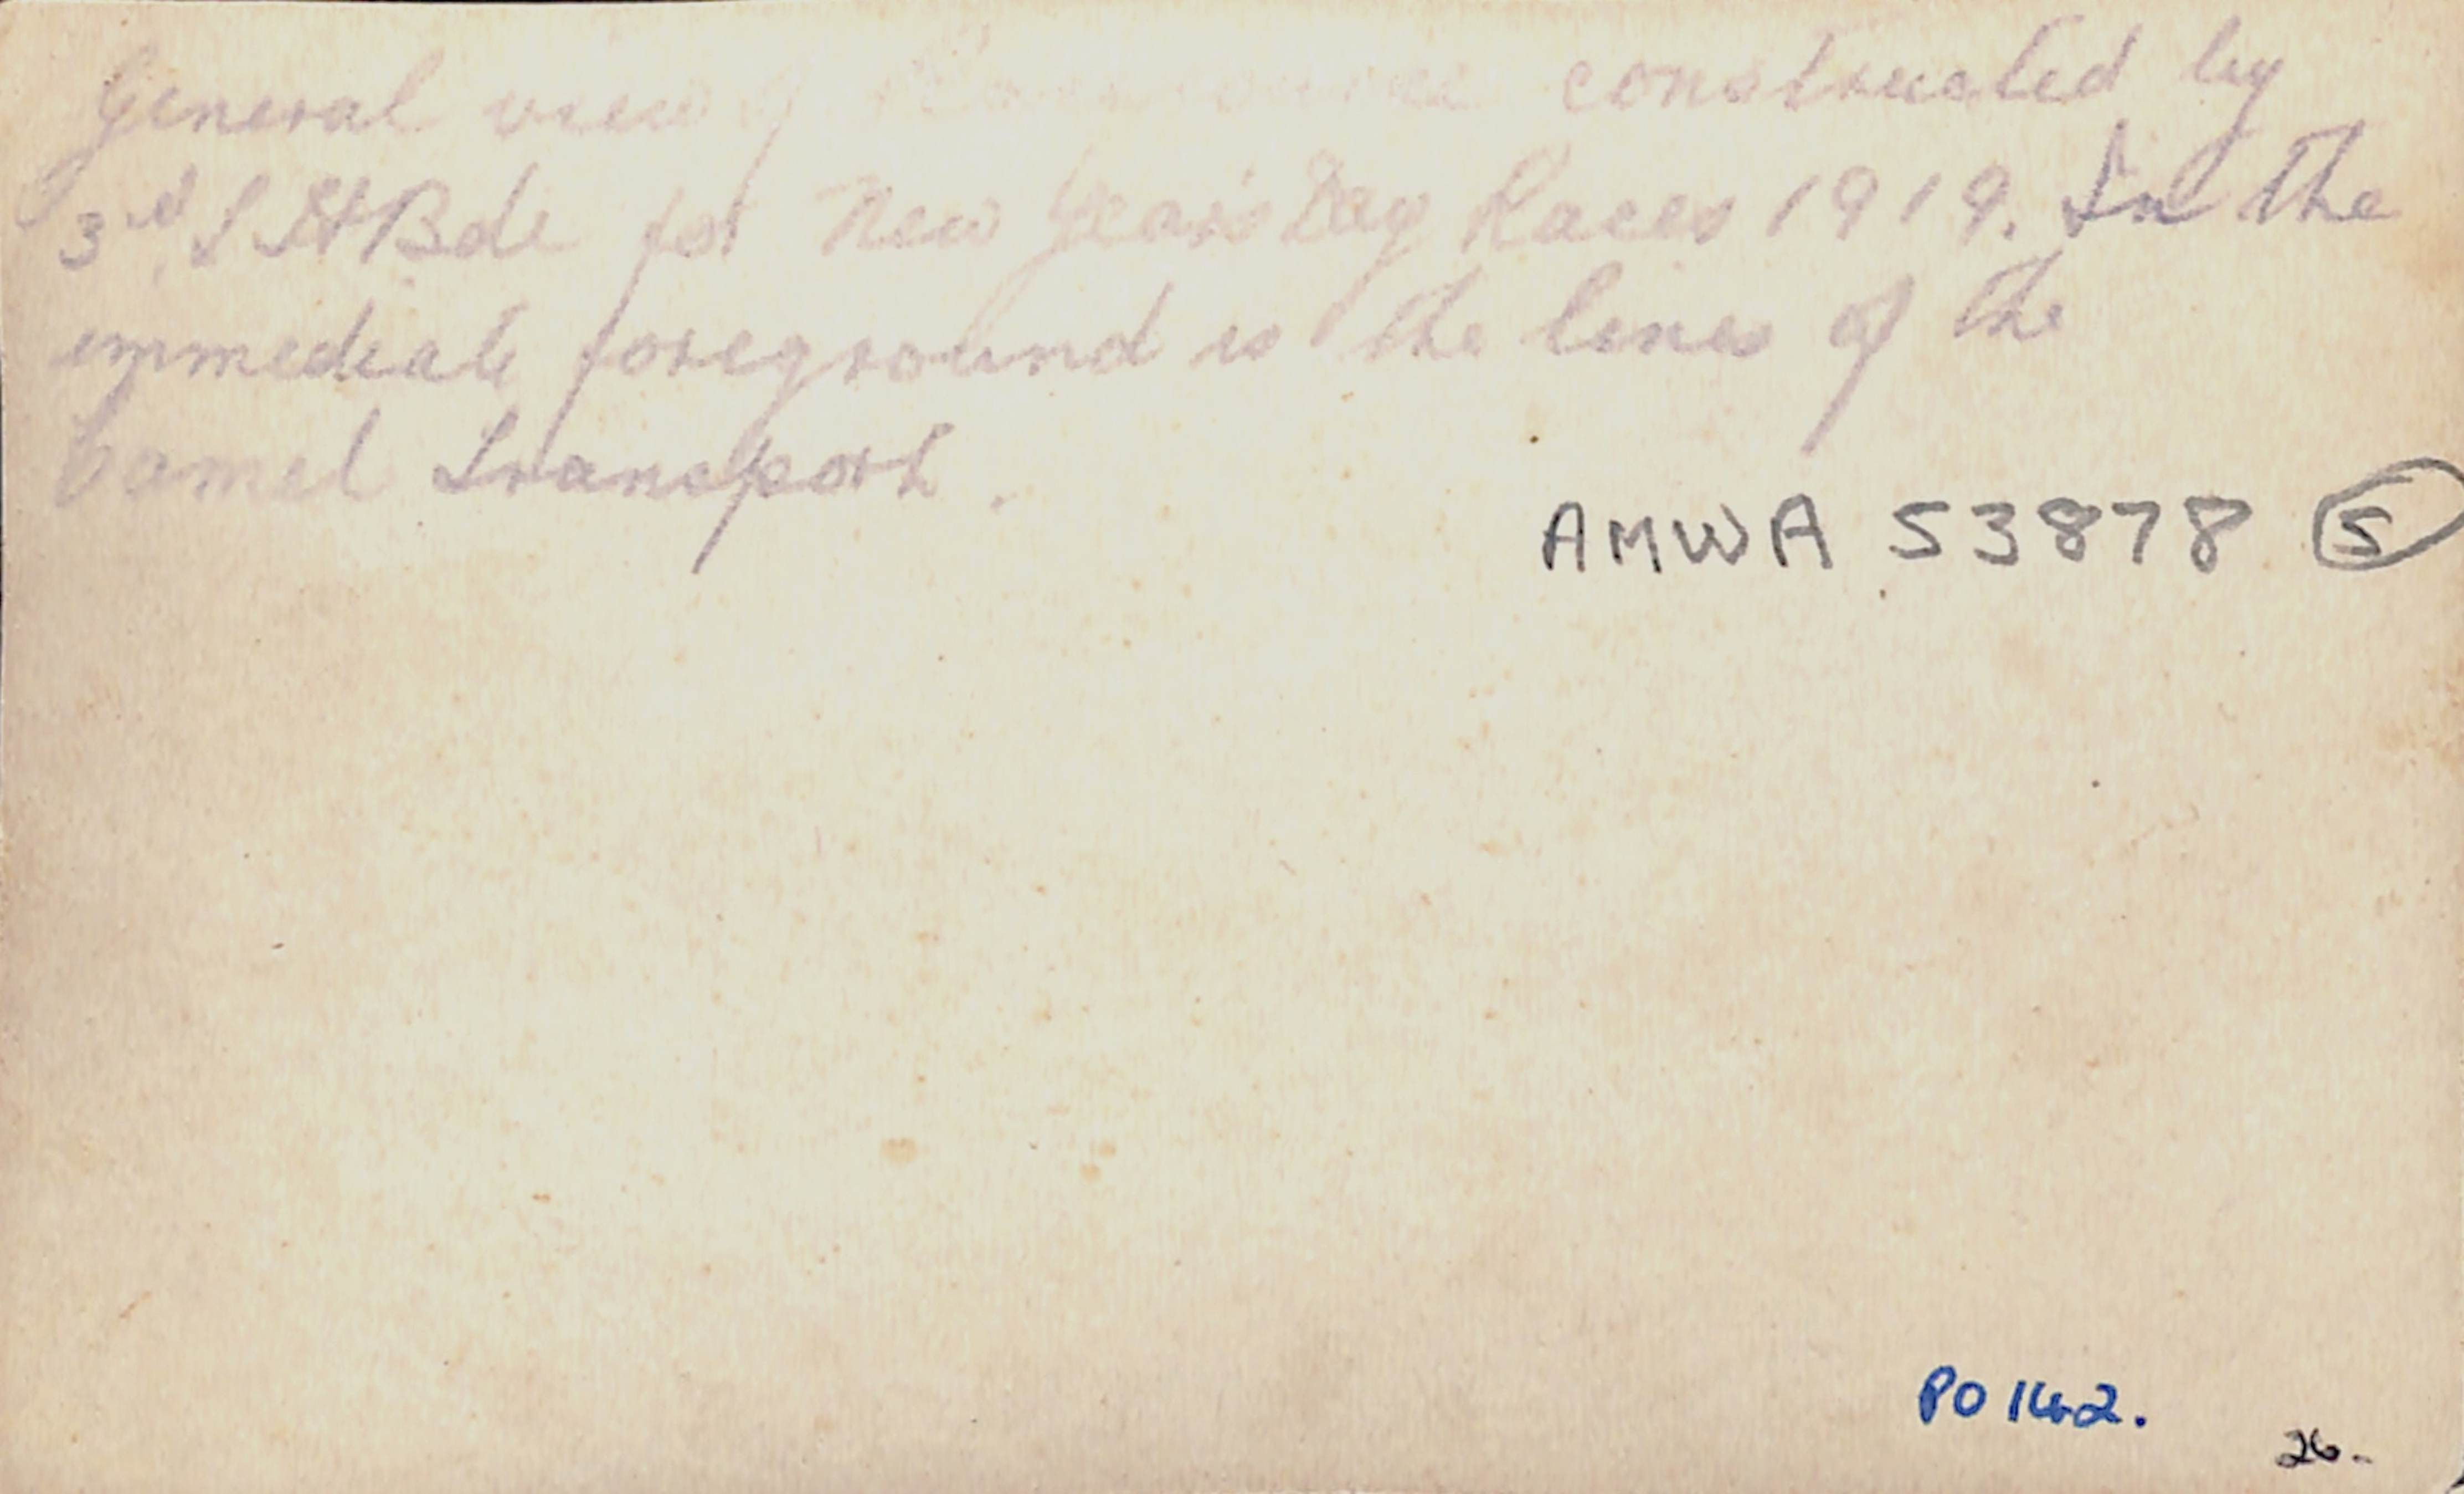 General view of Racecourse constructed by
3rd L H Bde for New Year's Day Races 1919. In the
immediate foreground is the lines of the
Camel Transport.
AMWA 53878 5
PO 142.
26.